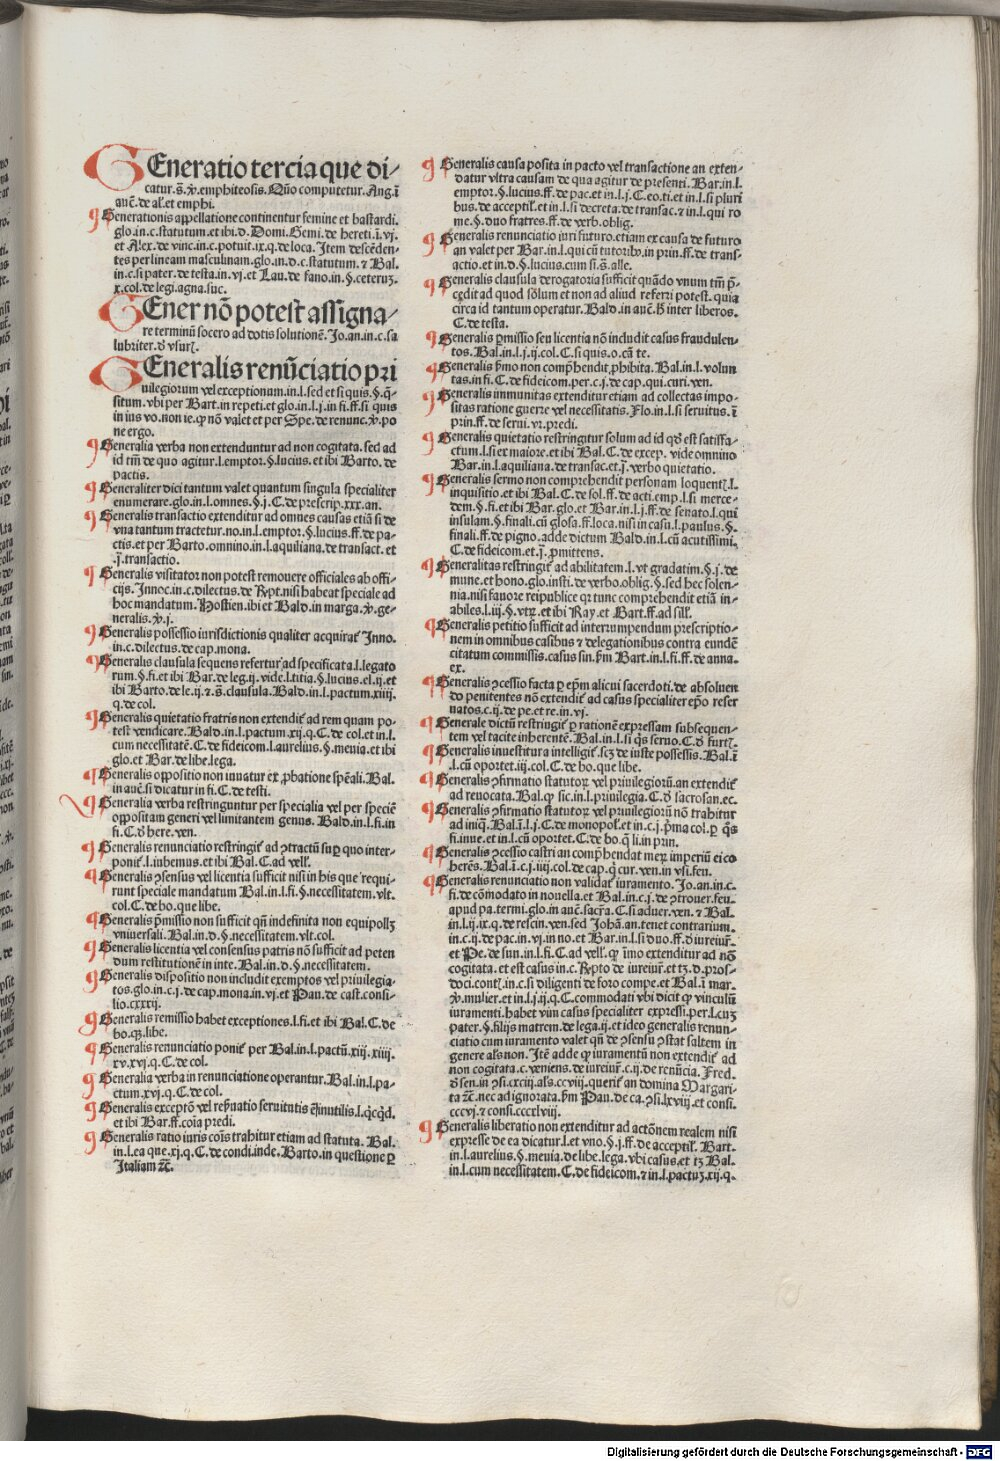 GEneratio tercia que di⸗
catur.s̄.ꝟ.emphiteosis. Quo computetur. Ang.ī
auc̄.de al.et emphi.
Generationis appellatione continentur femine et bastardi.
glo.in.c.statutum.et ibi.d. Domi. Gemi.de hereti.ī.vj.
et Alex.de vinc.in.c.potuit.ix.q.de loca. Item descēden⸗
tes per lineam masculinam.glo.in.d.c.statutum.⁊ Bal.
in.c.si pater.de testa.in.vj.et Lau.de fano.in.§.ceterum.
x.col.de legi.agna.suc.
GEner nō potest assigna⸗
re terminū socero ad dotis solutionē. Jo.an.in.c.sa
lubriter.ꝺ̄ vsur.
GEneralis renūciatio pri
uilegiorum vel exceptionum.in.l.sed et si quis.§.q̄⸗
situm.vbi per Bart.in repeti.et glo.in.l.j.in fi.ff.si quis
in ius vo.non ie.ꝙ nō valet et per Spe.de renunc.ꝟ.po
ne ergo.
Generalia verba non extenduntur ad non cogitata.sed ad
id tm̄ de quo agitur.l.emptor.§.lucius.et ibi Barto.de
pactis.
Generaliter dici tantum valet quantum singula specialiter
enumerare.glo.in.l.omnes.§.j.C.de prescrip.xxx.an.
Generalis transactio extenditur ad omnes causas etiā si de
vna tantum tractetur.no.in.l.emptor.§.lucius.ff.de pa⸗
ctis.et per Barto.omnino.in.l.aquiliana.de transact.et
.j̄.transactio.
Generalis visitator non potest remouere officiales ab offi⸗
cijs. Innoc.in.c.dilectus.de Rpt.nisi habeat speciale ad
hoc mandatum. Hostien.ibi et Bald.in marga.ꝟ.ge⸗
neralis.ꝟ.j.
Generalis possessio iurisdictionis qualiter acquirat᷑ Inno.
in.c.dilectus.de cap.mona.
Generalis clausula sequens refertur ad specificata.l.legato
rum.§.fi.et ibi Bar.de leg.ij.vide.l.titia.§.lucius.el.ij.et
ibi Barto.de le.ij.⁊.s̄.clausula. Bald.in.l.pactum.xiiij
q.de col.
Generalis quietatio fratris non extendit᷑ ad rem quam po⸗
test vendicare. Bald.in.l.pactum.xij.q.C.de col.et in.l.
cum necessitatē.C.de fideicom.l.aurelius.§.meuia.et ibi
glo.et Bar.de libe.lega.
Generalis oppositio non iuuatur ex ꝓbatione spēali. Bal.
in auc̄.si dicatur in fi.C.de testi.
Generalia verba restringuntur per specialia vel per speciē
oppositam generi vel limitantem genus. Bald.in.l.fi.in
fi.C.ꝺ̄ here.ven.
Generalis renunciatio restringit᷑ ad ↄtractū sup̱ quo inter⸗
ponit᷑.l.iubemus.et ibi Bal.C.ad vell.
Generalis ↄsensus vel licentia sufficit nisi in his que requi⸗
runt speciale mandatum Bal.in.l.fi.§.necessitatem.vlt.
col.C.de bo.que libe.
Generalis p̄missio non sufficit qn̄ indefinita non equipollꝫ
vniuersali. Bal.in.d.§.necessitatem.vlt.col.
Generalis licentia vel consensus patris nō sufficit ad peten
dum restitutionē in inte. Bal.in.d.§.necessitatem.
Generalis dispositio non includit exemptos vel priuilegia⸗
tos.glo.in.c.j.de cap.mona.in.vj.et Pan.de cast.consi⸗
lio.cxxxij.
Generalis remissio habet exceptiones.l.fi.et ibi Bal.C.de
bo.q̄.libe.
Generalis renunciatio ponit᷑ per Bal.in.l.pactū.xij.xiiij.
xv.xvj.q.C.de col.
Generalia verba in renunciatione operantur. Bal.in.l.pa⸗
ctum.xvj.q.C.de col.
Generalis exceptō vel rep̄natio seruitutis ē inutilis.l.q̇cq̇d.
et ibi Bar.ff.coīa predi.
Generalis ratio iuris cōis trahitur etiam ad statuta. Bal.
in.l.ea que.xj.q.C.de condi.inde. Barto.in questione ꝑ
Italiam ⁊c̄.
Generalis causa posita in pacto vel transactione an exten⸗
datur vltra causam de qua agitur de presenti. Bar.in.l.
emptor.§.lucius.ff.de pac.et in.l.j.C.eo.ti.et in.l.si pluri
bus.de acceptil.et in.l.si decreta.de transac.⁊ in.l.qui ro
me.§.duo fratres.ff.de verb.oblig.
Generalis renunciatio iuri futuro.etiam ex causa de futuro
an valet per Bar.in.l.qui cū tutoribꝰ.in prin.ff.de trans⸗
actio.et in.d.§.lucius.cum si.s̄.alle.
Generalis clausula derogatoria sufficit quādo vnum tm̄ p̄⸗
cedit ad quod solum et non ad aliud referri potest.quia
circa id tantum operatur. Bald.in auc̄.h̄ inter liberos.
C.de testa.
Generalis ꝑmissio seu licentia nō includit casus fraudulen⸗
tos. Bal.in.l.j.ij.col.C.si quis.o.cā te.
Generalis ꝓmo non comp̄hendit ꝓhibita. Bal.in.l.volun
tas.in fi.C.de fideicom.per.c.j.de cap.qui.curi.ven.
Generalis immunitas extenditur etiam ad collectas impo⸗
sitas ratione guerre vel necessitatis. Flo.in.l.si seruitus.ī
prin.ff.de serui.vr.predi.
Generalis quietatio restringitur solum ad id qd̄ est satisfa⸗
ctum.l.si ex maiore.et ibi Bal.C.de excep. vide omnino
Bar.in.l.aquiliana.de transac.et.j̄.verbo quietatio.
Generalis sermo non comprehendit personam loquent᷑.l.
inquisitio.et ibi Bal.C.de sol.ff.de acti.emp.l.si merce⸗
dem.§.fi.et ibi Bar.glo.et Bar.in.l.j.ff.de senato.l.qui
insulam.§.finali.cū glosa.ff.loca.nisi in casu.l.paulus.§.
finali.ff.de pigno.adde dictum Bald.in.l.cū acutissimi.
C.de fideicom.et.j̄.ꝓmittens.
Generalitas restringit᷑ ad abilitatem.l.vt gradatim.§.j.de
mune.et hono.glo.insti.de verbo.oblig.§.sed hec solen⸗
nia.nisi fauore reipublice qr tunc comprehendit etiā in⸗
abiles.l.iij.§.vtꝝ.et ibi Ray.et Bart.ff.ad sill.
Generalis petitio sufficit ad interrumpendum prescriptio⸗
nem in omnibus casibus ⁊ delegationibus contra eundē
citatum commissis.casus sin.ꝓm Bart.in.l.fi.ff.de anna.
ex.
Generalis ↄcessio facta ꝑ ep̄m alicui sacerdoti.de absoluen
do penitentes nō extendit᷑ ad casus specialiter ep̄o reser
uatos.c.ij.de pe.et re.in.vj.
Generale dictū restringit᷑ ꝑ rationē expressam subsequen⸗
tem vel tacite inherentē. Bal.in.l.si qs̄ seruo.C.ꝺ̄ furt᷑.
Generalis inuestitura intelligit᷑ scꝫ de iuste possessis. Bal.ī
.l.cū oportet.iij.col.C.de bo.que libe.
Generalis ↄfirmatio statutoꝝ vel priuilegioruꝫ.an extendit᷑
ad reuocata. Bal.ꝙ sic.in.l.priuilegia.C.ꝺ̄ sacrosan.ec.
Generalis ↄfirmatio statutoꝝ vel priuilegioruꝫ nō trahitur
ad iniq̄. Bal.ī.l.j.C.de monopol.et in.c.j.ꝓma col.ꝑ q̄s
fi.inue.et in.l.cū oportet.C.de bo.q̄ li.in prin.
Generalis ↄcessio castri an comp̄hendat meꝝ imperiū ei co
herēs. Bal.ī.c.j.iiij.col.de cap.q̇ cur.ven.in vsi.feu.
Generalis renunciatio non validat᷑ iuramento. Jo.an.in.c.
fi.de cōmodato in nouella.et Bal.in.c.j.de ↄtrouer.feu.
apud pa.termi.glo.in auc̄.sacrā.C.si aduer.ven.⁊ Bal.
in.l.ij.ix.q.de rescin.ven.sed Johā.an.tenet contrarium.
in.c.ij.de pac.in.vj.in no.et Bar.in.l.si duo.ff.ꝺ̄ iureiur̄.
et Pe.de sun.in.l.fi.C.ad vell.ꝙ īmo extenditur ad nō
cogitata.et est casus in.c.Rpto de iureiur̄.et tꝫ.d.pros⸗
doci.cont᷑.in.c.si diligenti de foro compe.et Bal.ī mar⸗
ꝟ.mulier.et in.l.j.ij.q.C.commodati vbi dicit ꝙ vinculū
iuramenti.habet vim casus specialiter expressi.per.l.cuꝫ
pater.§.filijs matrem.de lega.ij.et ideo generalis renun⸗
ciatio cum iuramento valet qn̄ de ↄsensu ↄstat saltem in
genere als̄ non. Itē adde ꝙ iuramentū non extendit᷑ ad
non cogitata.c.veniens.de iureiur̄.c.ij.de renūcia. Fred.
ꝺ̄ sen.in ↄsi.cxciij.als̄.ccviij.querit᷑ an domina Margari⸗
ta ⁊c̄.nec ad ignorata.ꝓm Pau.de ca.ↄsi.lxviij.et consi.
cccvj.⁊ consi.cccxlviij.
Generalis liberatio non extenditur ad actōnem realem nisi
expresse de ea dicatur.l.et vno.§.j.ff.de acceptil. Bart.
in.l.aurelius.§.meuia.de libe.lega.vbi casus.et tꝫ Bal.
in.l.cum necessitatem.C.de fideicom.⁊ in.l.pactuꝫ.xij.q.
Digitalisierung gefördert durch die Deutsche Forschungsgemeinschaft - DFG